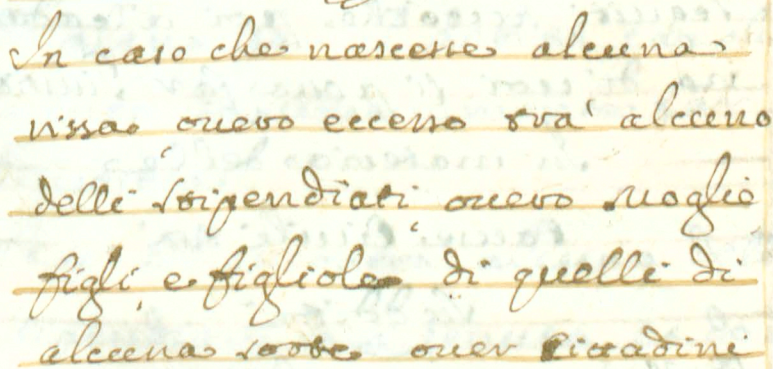 In caso che nascesse alcuna
rissa, overo eccesso trà alcuno
delli stipendiati, overo moglie
figli, e figliole di quelli di
alcuna sorte over Cittadini